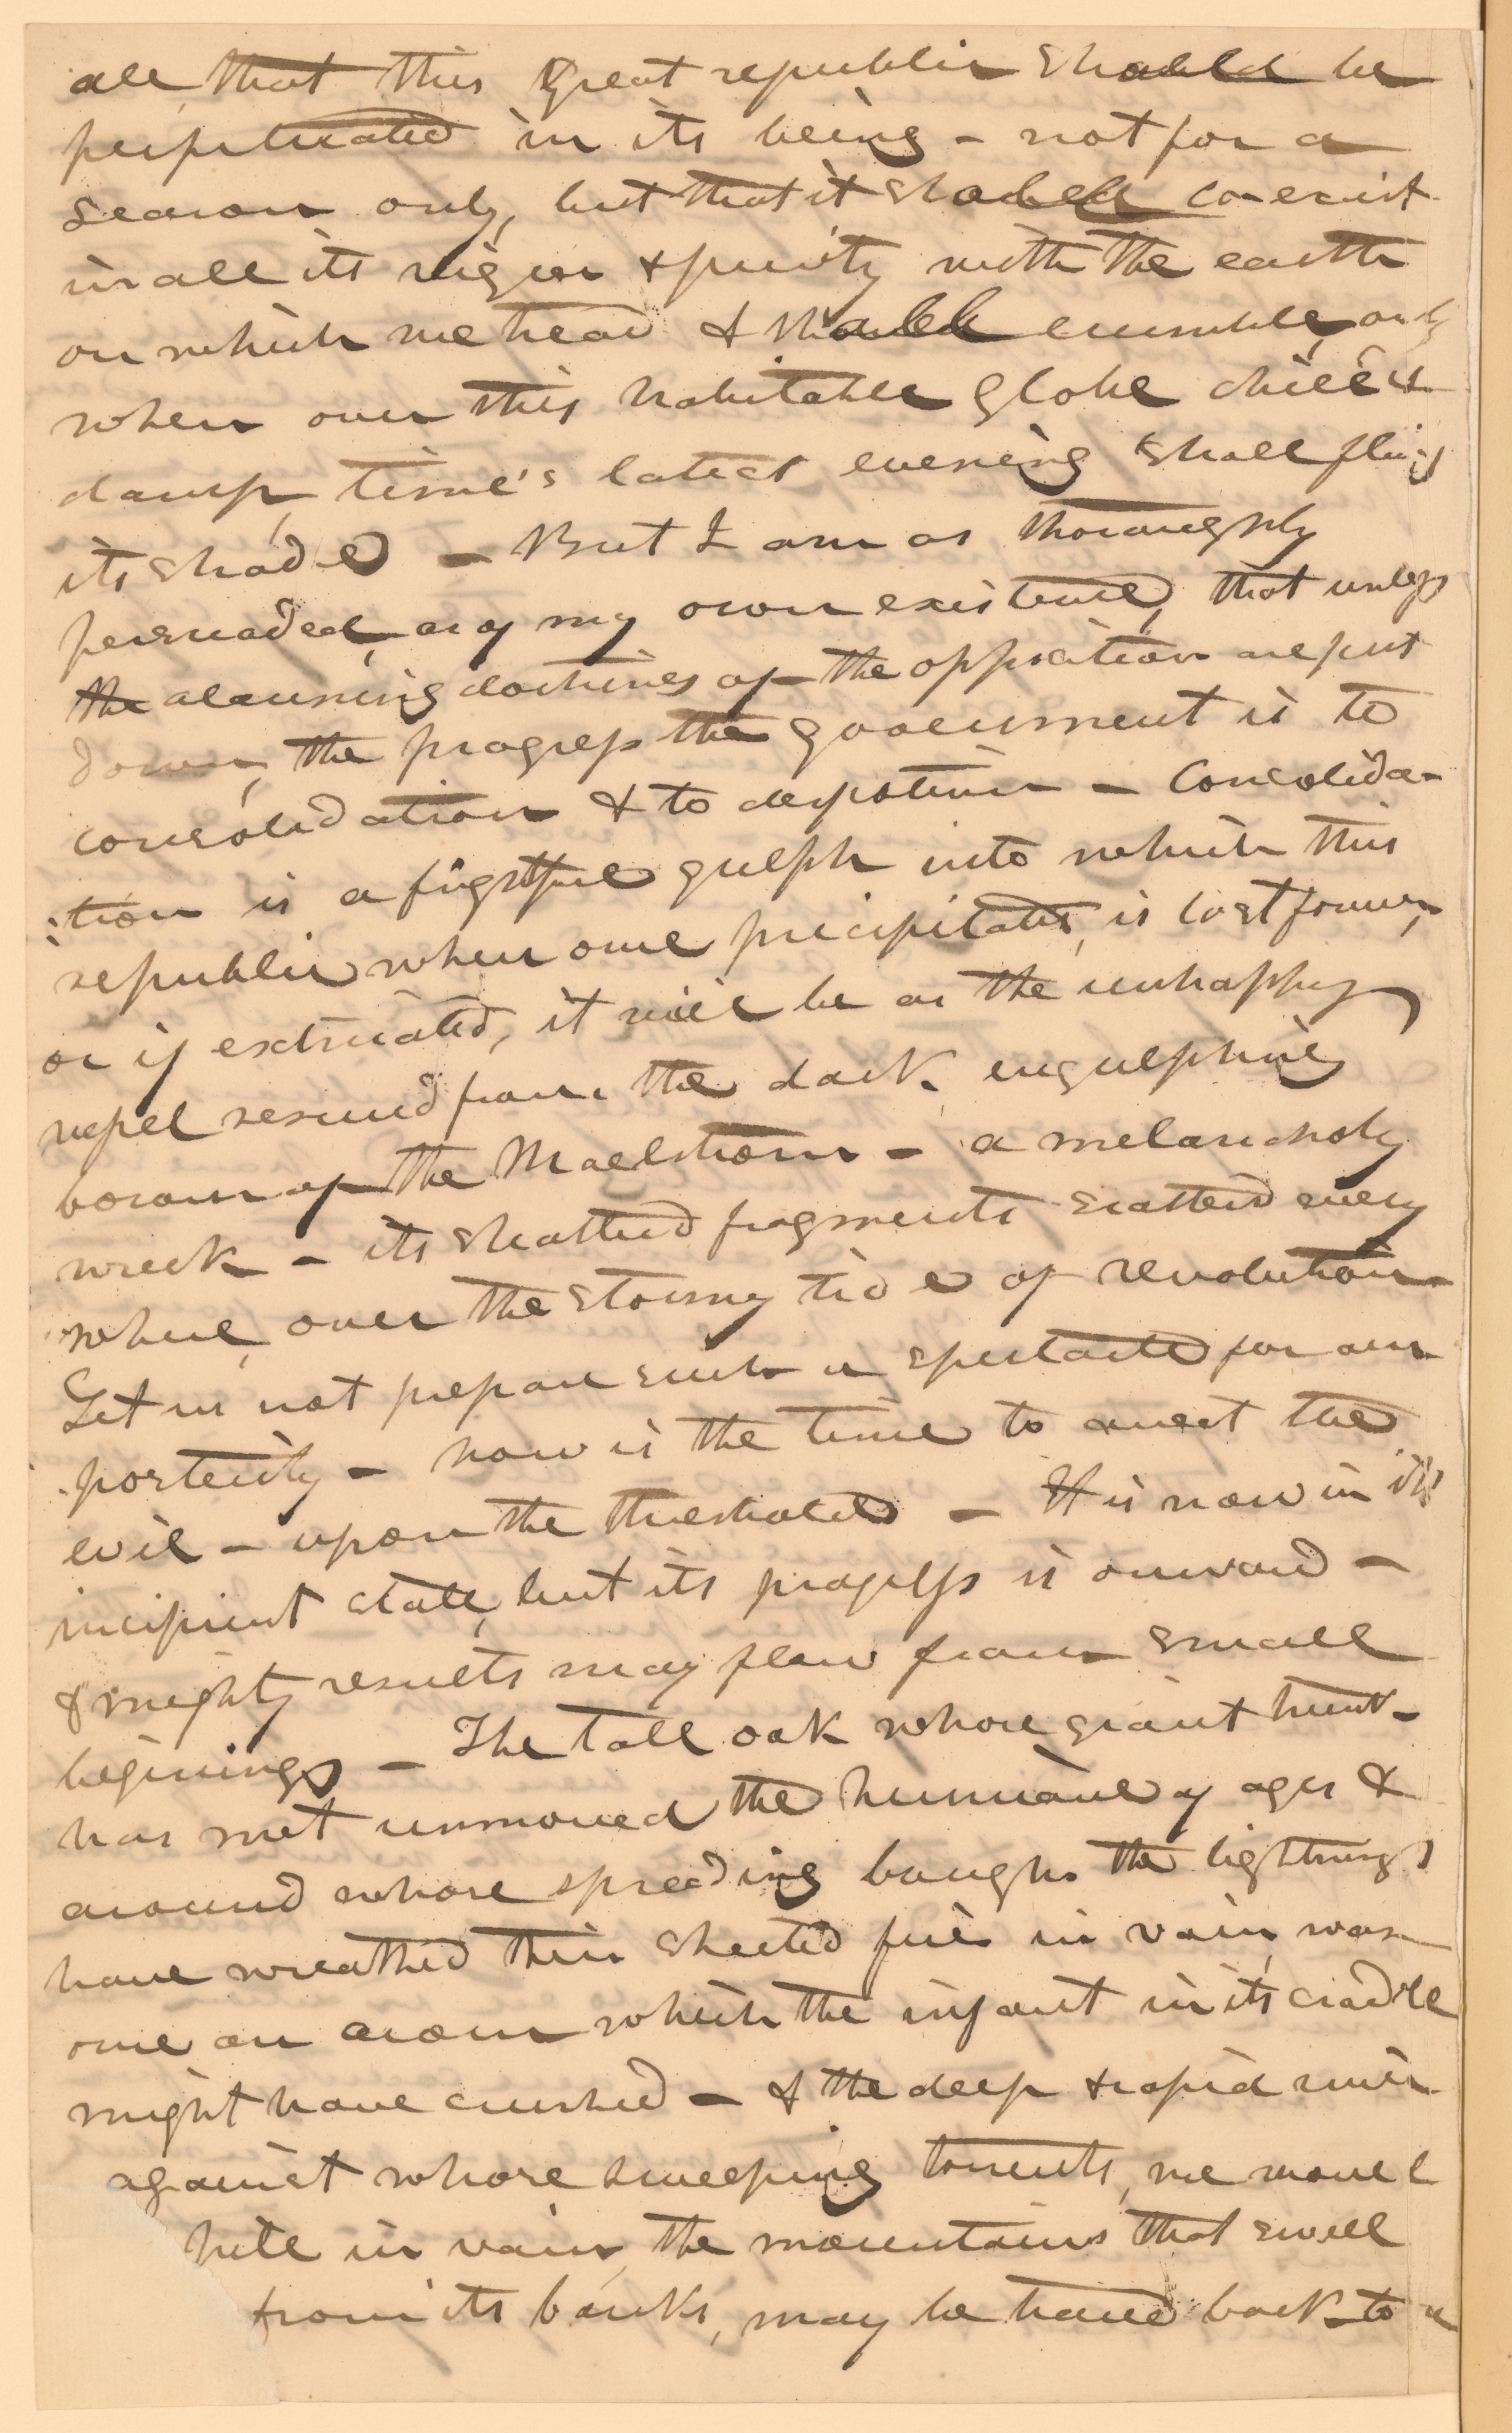 all that this great republic should be
perpetuated in its being - not for a
season only, but that it shall co-exist
in all its vigor & purity with the earth
on which we tread & shall crumble, only
when over this habitable globe chill &
damp, time's latest evening shall fling
its shade - But I am as thoroughly
persuaded, as of my own existence, that unless
the alarming doctrines of the opposition are put
down, the progress the government is to
consolidation & to despotism - Consolida-
:tion is a frightful gulph into which this
republic when once precipitated, is lost forever,
or if extricated, it will be as the unhappy
vessel rescued from the dark engulphing
bosom of the Maelstrom - a melancholy
wreck - its shattered fragments scattered every
where, over the stormy tide of revolution
Let us not prepare such a spectacle for our
posterity - now is the time to meet the
evil - upon the threshold - It is now in its
incipient state, but its progress is onward -
& mighty results may flow from small
beginings - The tall oak whose giant trunk
has met unmoved the hurricane of ages &
around whose spreading boughs the lightnings
have wreathed their sheeted fire in vain, was
once an acorn which the infant in its cradle
might have crushed - & the deep & rapid river
against whose sweeping torrents, we would
pile in vain, the mountains that swell
from its banks, may be traced back to a